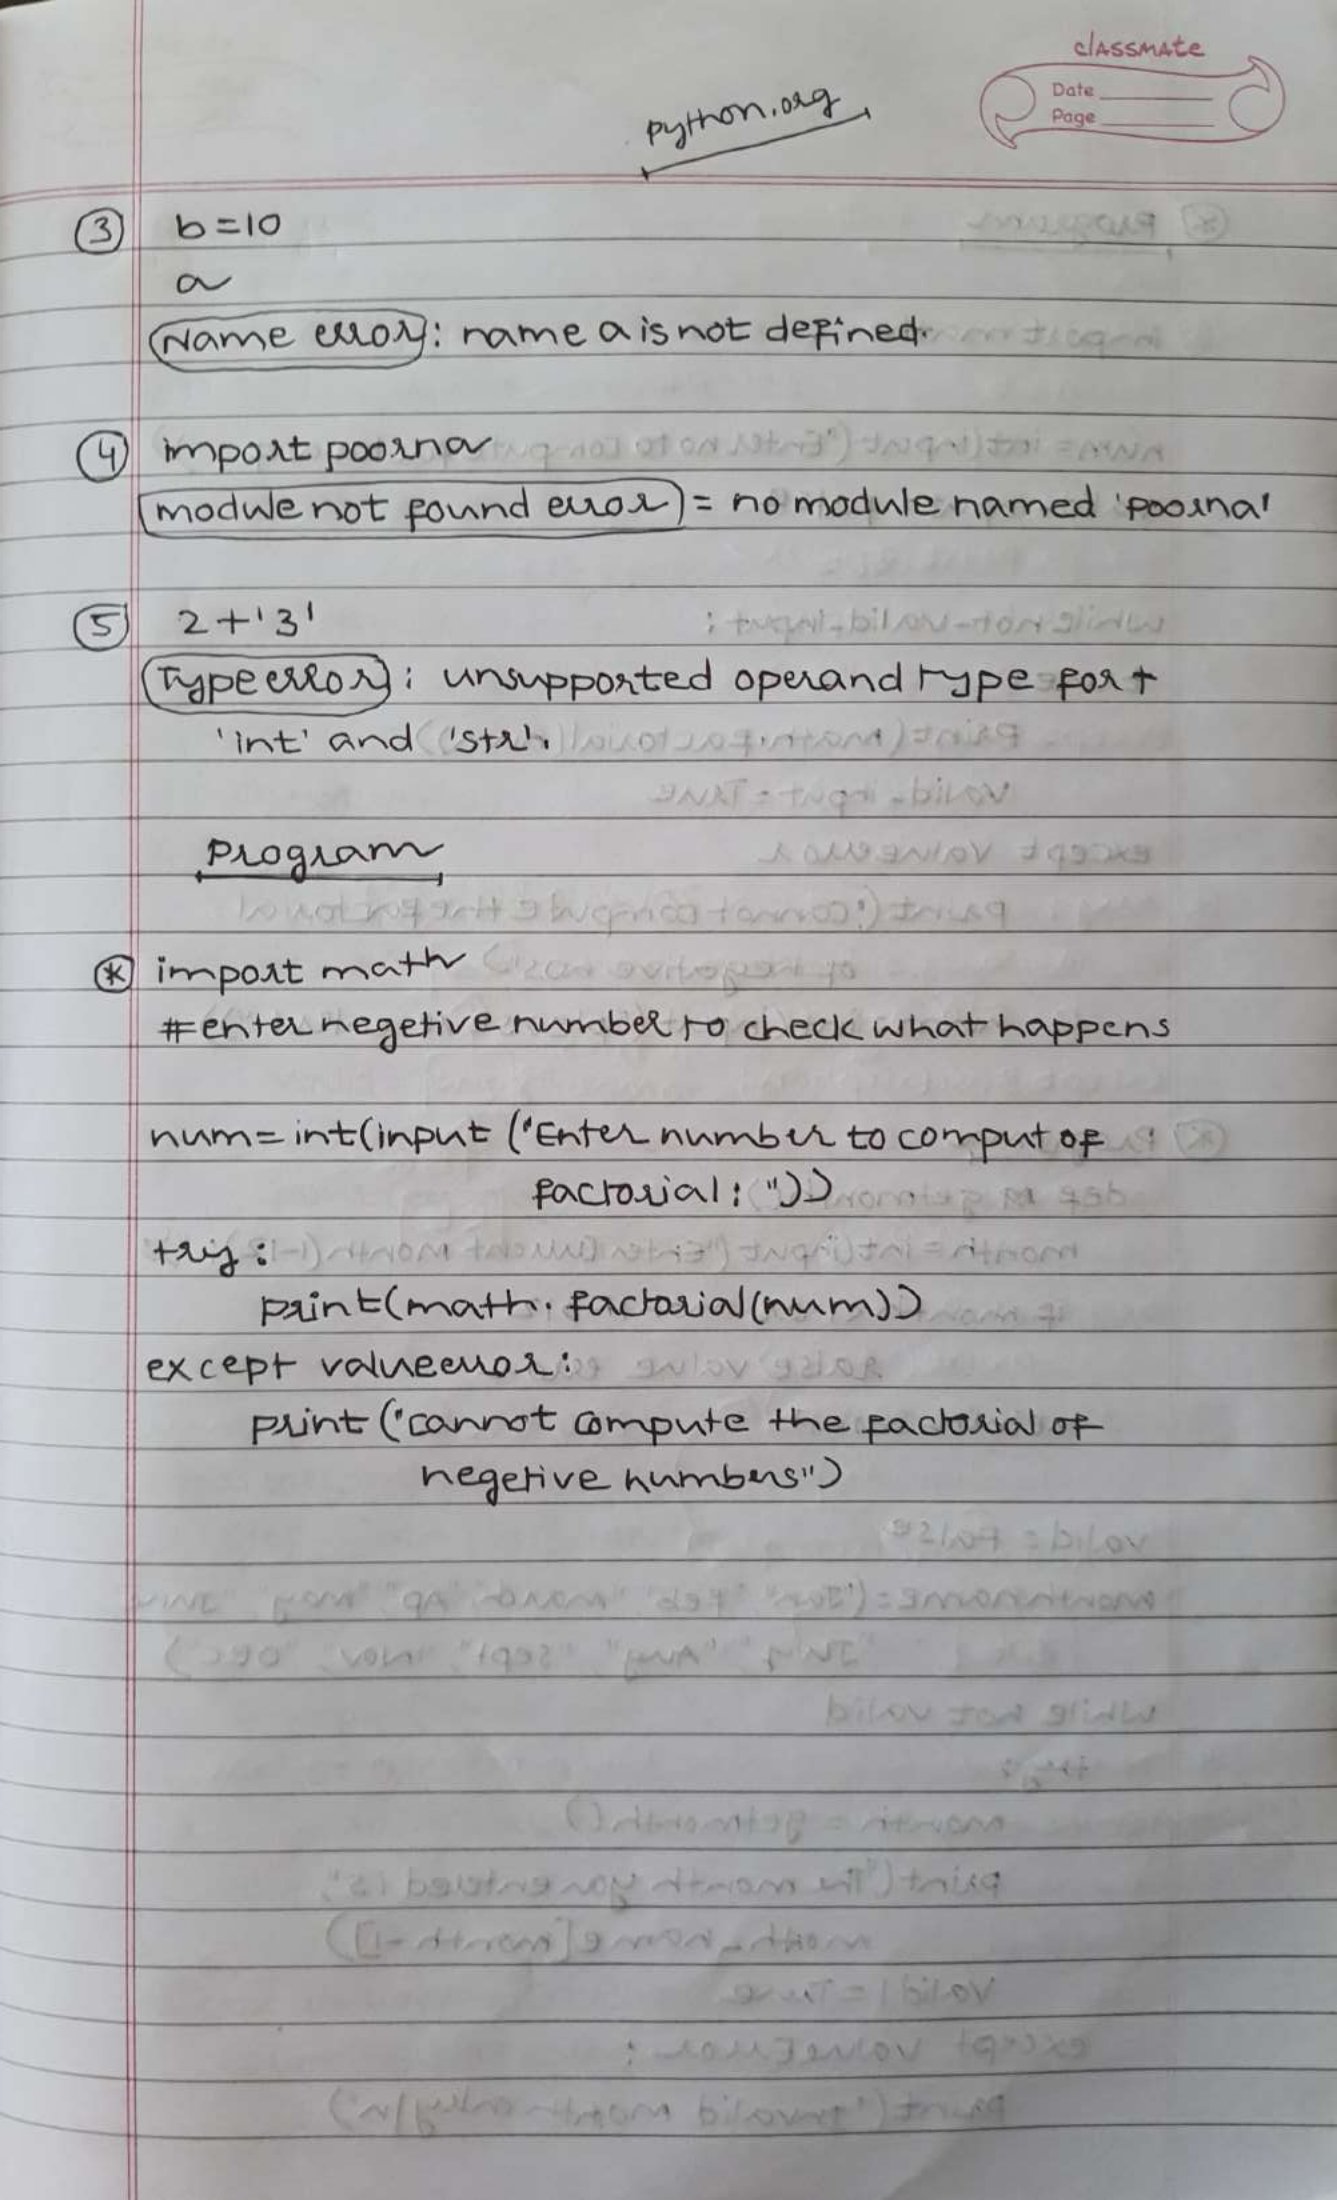 classmate
Date
Page
python.org
③ b=10
a
Name error: name a is not defined.
④ import poorna
module not found error = no module named 'poorna'
⑤ 2+'3'
Type error: unsupported operand type for +
'int' and 'str'.
Program
* import math
#enter negetive number to check what happens
num=int(input ("Enter number to comput of
factorial: "))
try:
print(math.factorial(num))
except valueerror:
print ("cannot compute the factorial of
negetive numbers")